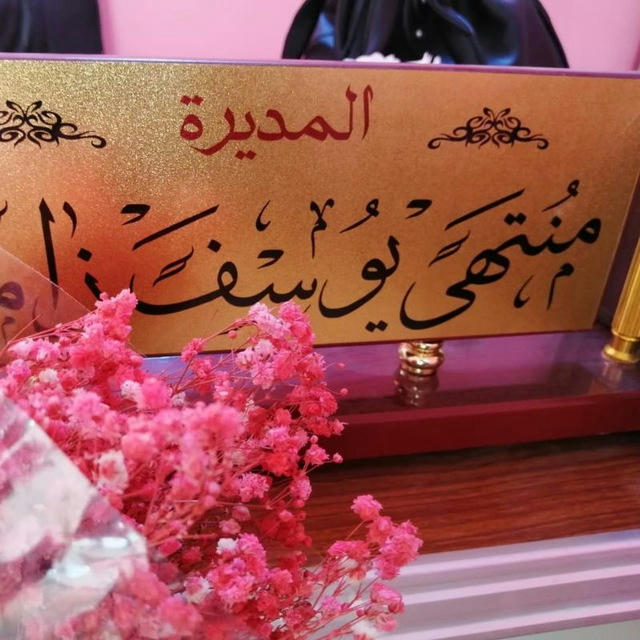 المديرة
مُنتهى يُوسف